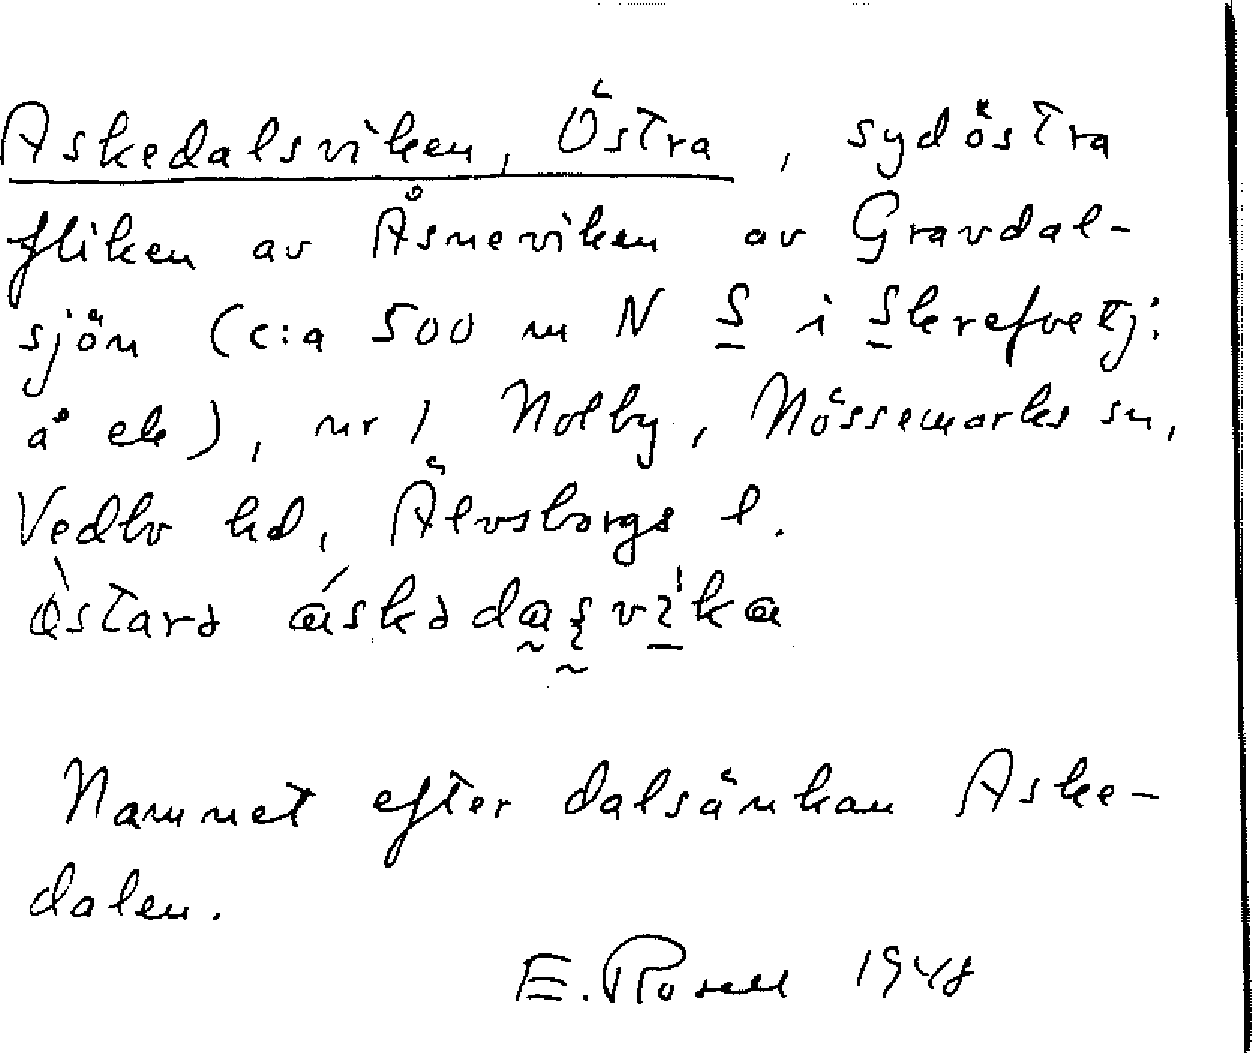 Askedalsviken, Östra, sydöstra
fliken av Åsneviken av Gravdal-
sjön (c:a 500 m N S i Skrefvetj:
å ek), nr 1 Nolby, Nössemarks sn,
Vedbo hd, Älvsborgs l.
Namnet efter dalsänkan Aske-
dalen.
E. Rosell 1948